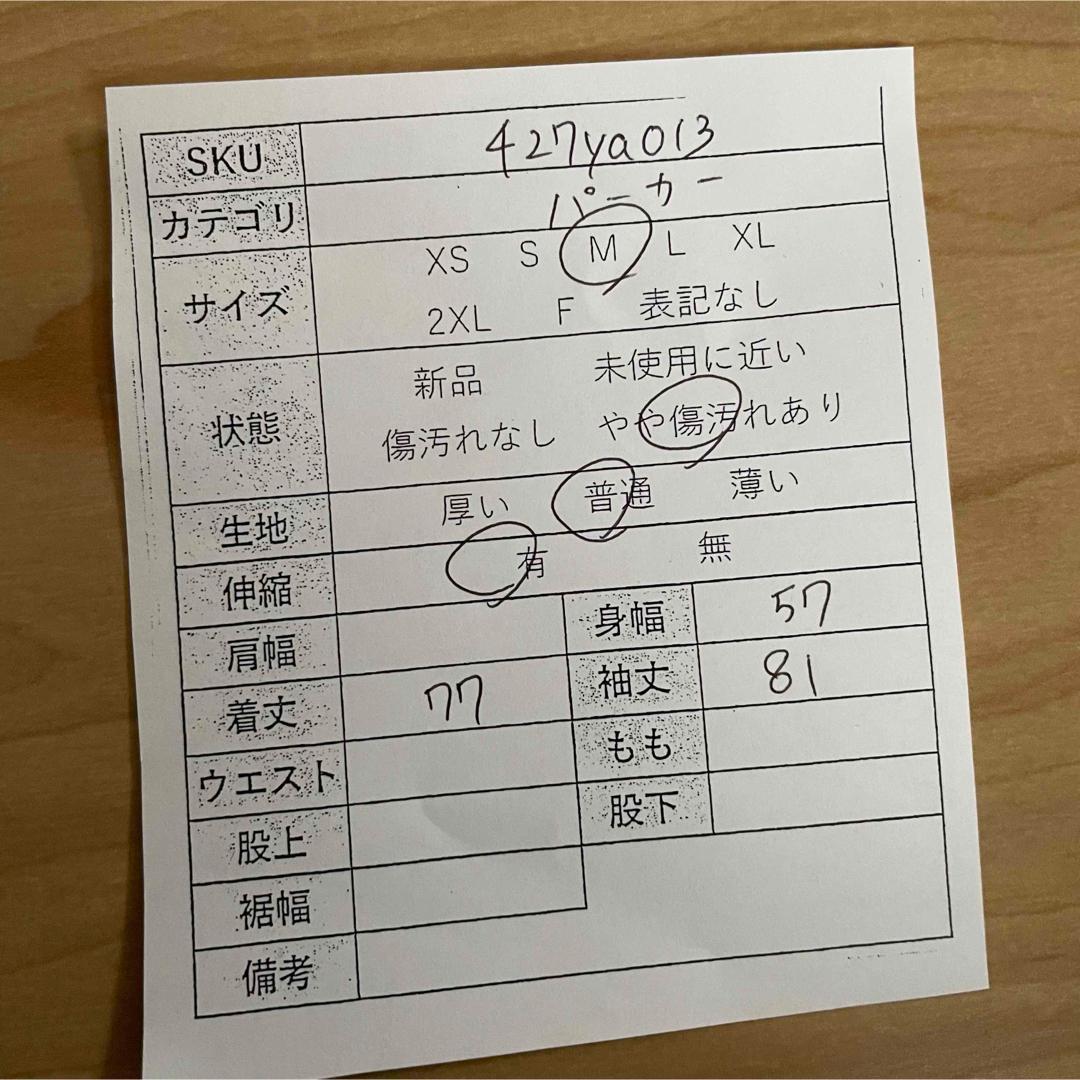 SKU 427ya013
カテゴリ パーカー
サイズ XS S M L XL
2XL F 表記なし
状態 新品 未使用に近い
傷汚れなし やや傷汚れあり
生地 厚い 普通 薄い
伸縮 有 無
肩幅 身幅 57
着丈 77 袖丈 81
ウエスト もも
股上 股下
裾幅
備考